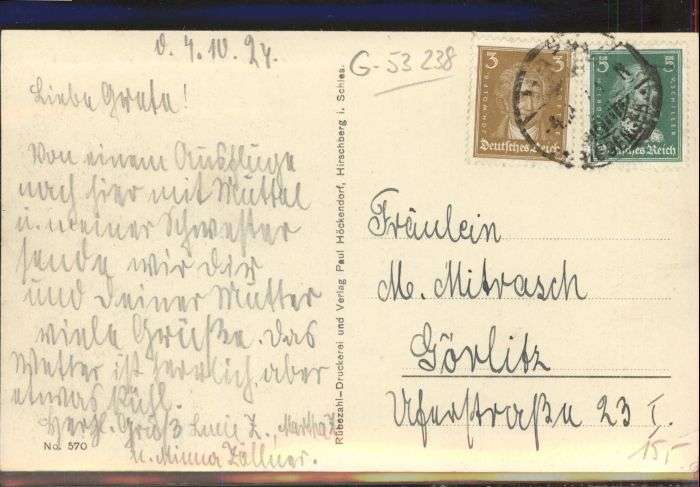 d. 4.10.27.
Liebe Greta!
Von einem Ausfluge
nach hier mit Muttel
u. meiner Schwester
sende wir dir
und deiner Mutter
viele Grüße. Das
Wetter ist herrlich, aber
etwas kühl.
Herzl. Gruß Lucie Z., Martha Z.
u. Minna Zöllner.
No. 570
Rübezahl-Druckerei und Verlag Paul Höckendorf, Hirschberg i. Schles.
G-53 238
3 3
JOH. WOLFG.
Deutsches Reich
5 5
FRIEDRICH V. SCHILLER
Deutsches Reich
Fräulein
M. Mitrasch
Görlitz
Uferstraße 23 I.
15,-